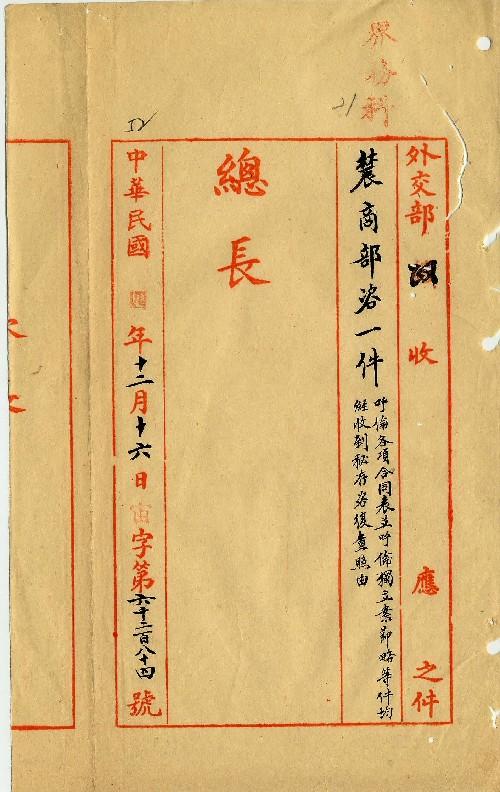 界務科
外交部收應之件
農商部咨一件
呼倫各項合同表並呼倫獨立案節略等件均
經收到秘存咨復查照由
總長
中華民國四年十二月十六日宙字第六千三百八十四號